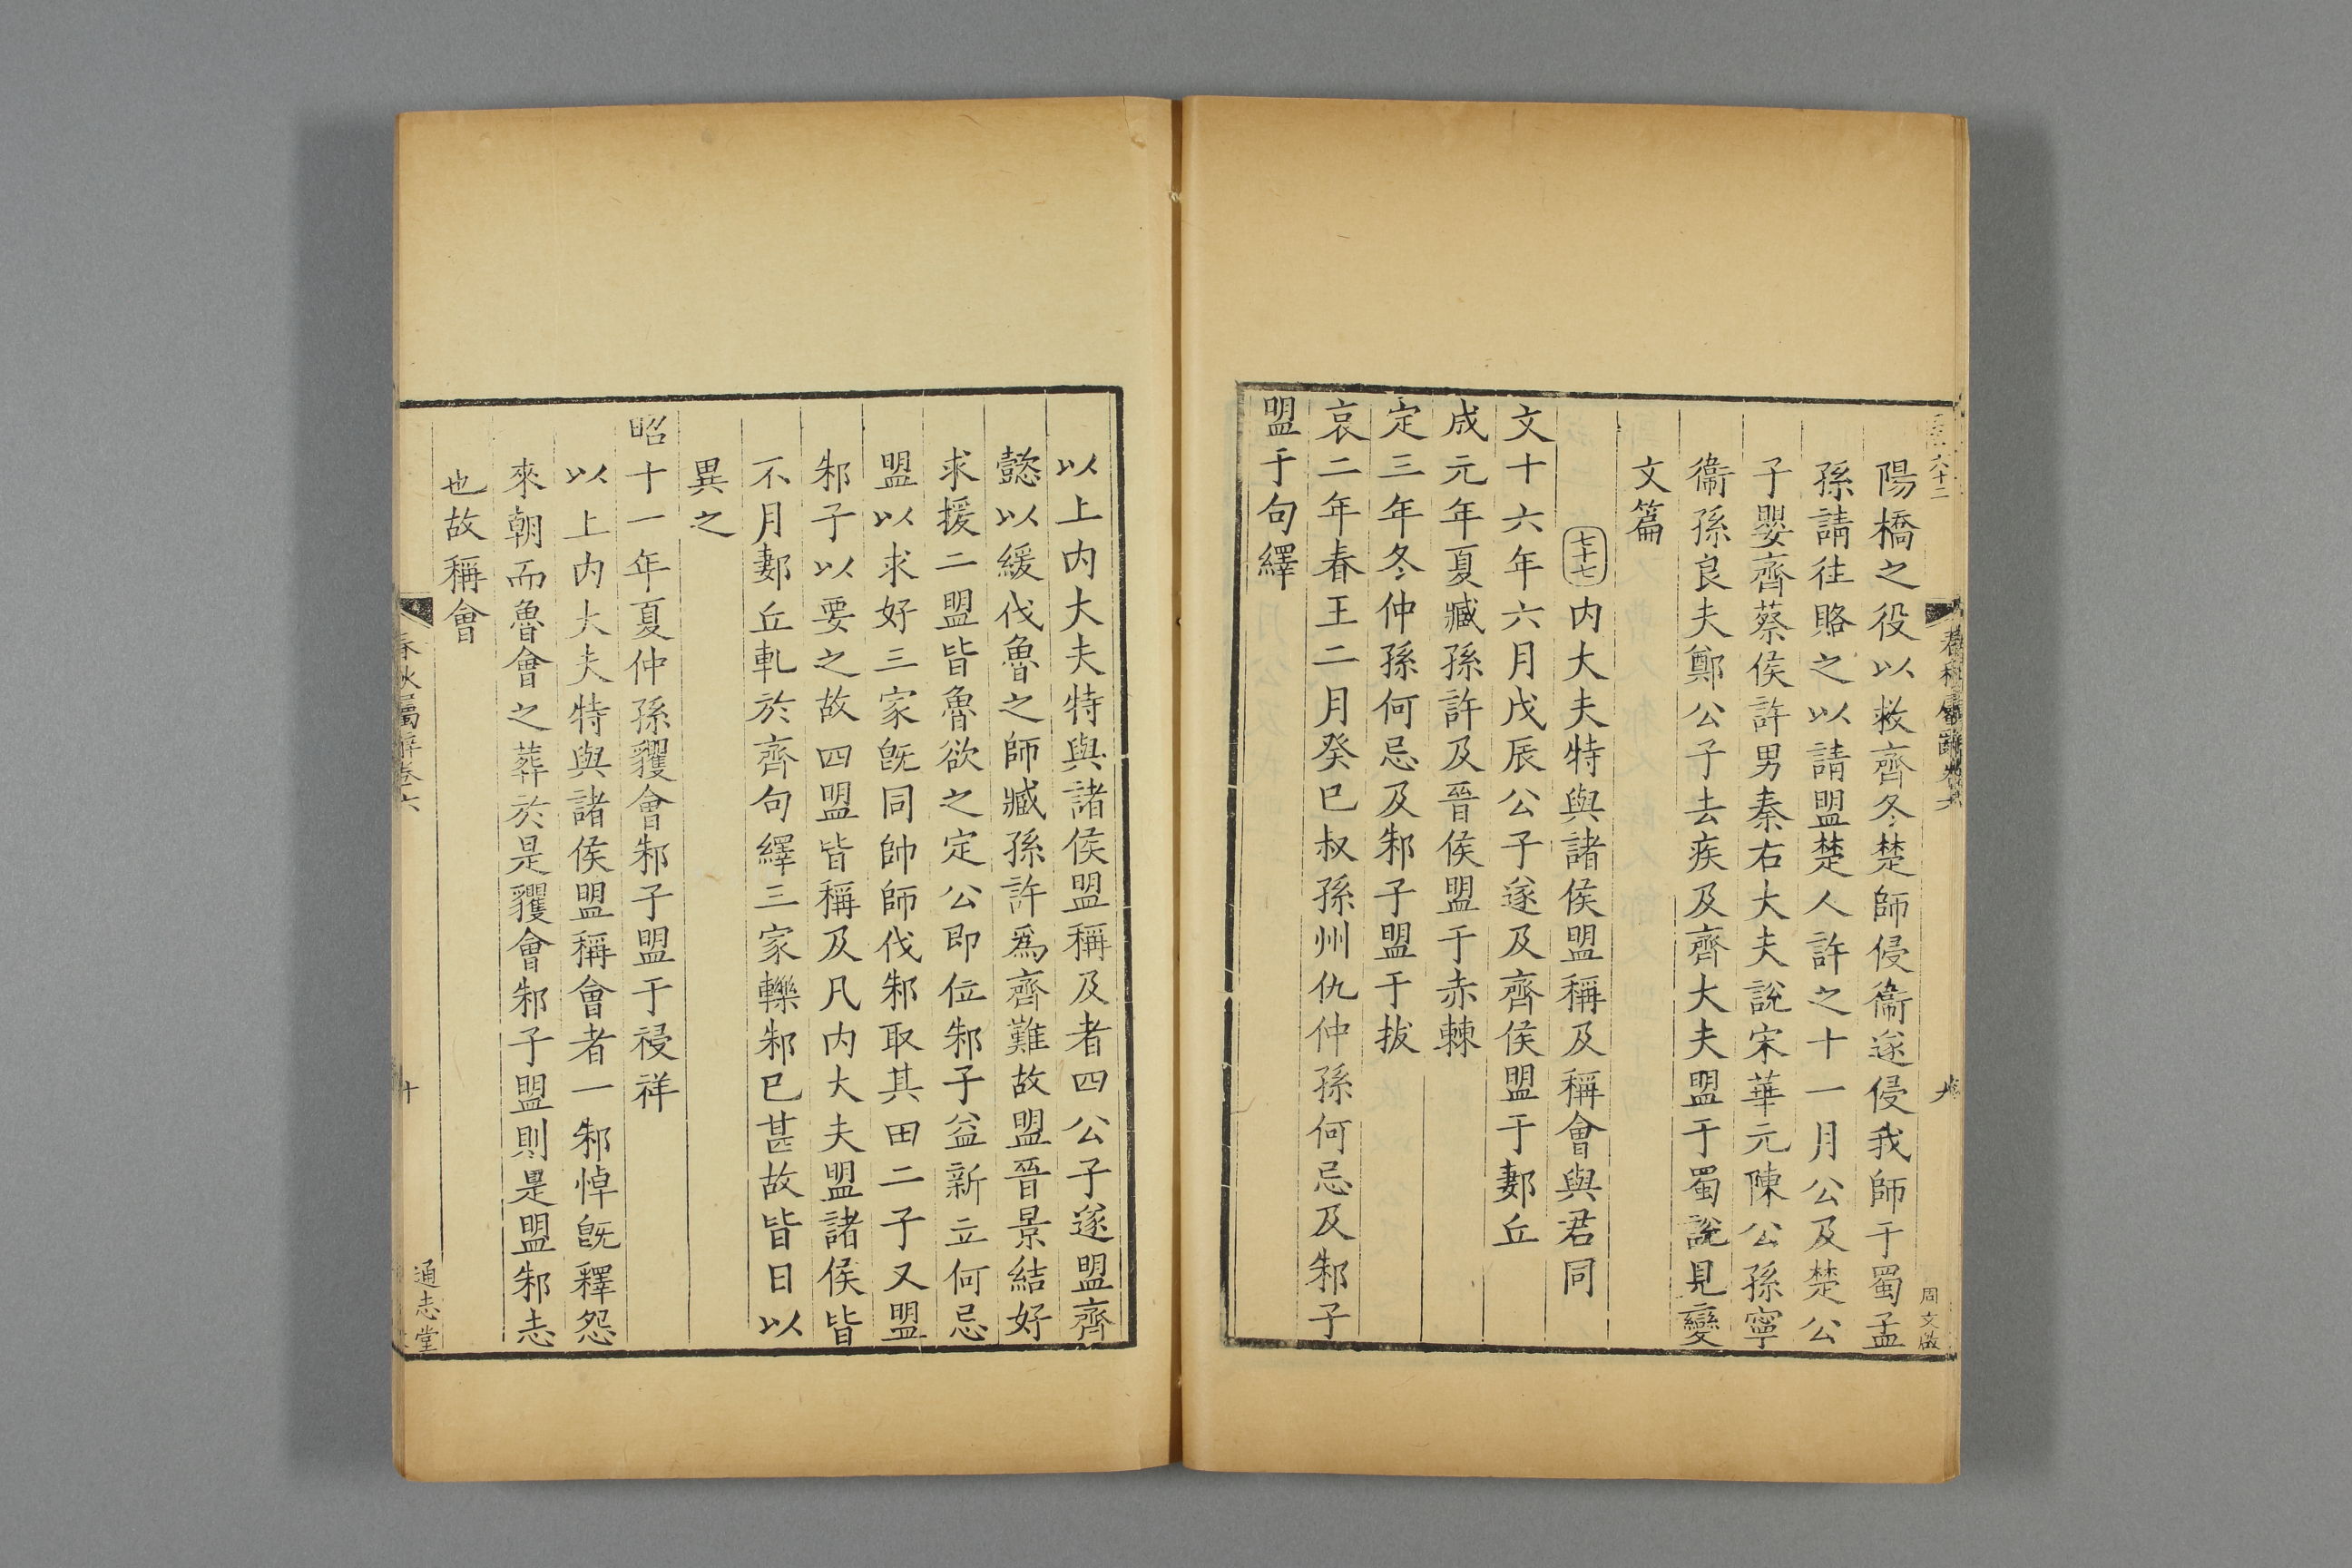 陽橋之役以救齊冬楚師侵衞遂侵我師于蜀孟
孫請往賂之以請盟楚人許之十一月公及楚公
子嬰齊蔡侯許男秦右大夫說宋華元陳公孫寧
衞孫良夫鄭公子去疾及齊大夫盟于蜀說見變
文篇
七十七内大夫特與諸侯盟稱及稱會與君同
文十六年六月戊辰公子遂及齊侯盟于郪丘
成元年夏臧孫許及晉侯盟于赤棘
定三年冬仲孫何忌及邾子盟于拔
哀二年春王二月癸巳叔孫州仇仲孫何忌及邾子
盟于句繹
周文啟
以上内大夫特與諸侯盟稱及者四公子遂盟齊
懿以緩伐魯之師臧孫許爲齊難故盟晉景結好
求援二盟皆魯欲之定公即位邾子益新立何忌
盟以求好三家旣同帥師伐邾取其田二子又盟
邾子以要之故四盟皆稱及凡内大夫盟諸侯皆
不月郪丘軋於齊句繹三家轢邾已甚故皆日以
異之
昭十一年夏仲孫貜會邾子盟于祲祥
以上内大夫特與諸侯盟稱會者一邾悼旣釋怨
來朝而魯會之葬於是貜會邾子盟則是盟邾志
也故稱會
春秋屬辭卷六
十
通志堂